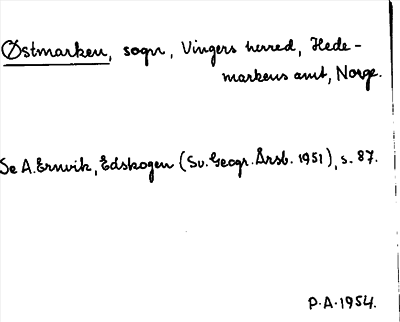 Østmarken, sogn, Vingers herred, Hede-
markens amt, Norge.
Se A. Ernvik, Edskogen (Sv. Geogr. Årsb. 1951), s. 87.
P.A. 1954.